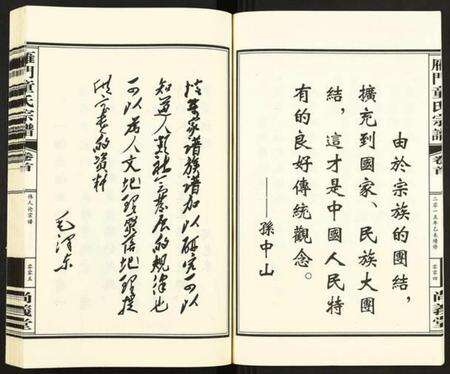 雁門童氏宗譜
卷首
二〇一五年乙未續修
尚義堂
由於宗族的團結，
擴充到國家、民族大團
結，這才是中國人民特
有的良好傳統觀念。
——孫中山
搜集家譜族譜加以研究可以
知道人類社會發展的規律也
可以為人文地理聚落地理提
供寶貴的資料
毛澤東
雁門童氏宗譜
卷首
偉人論宗譜
尚義堂